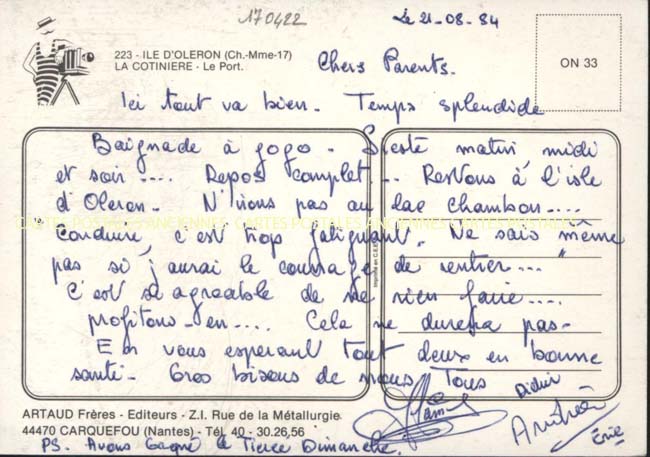 170422
Le 21-08-84
223 - ILE D'OLERON (Ch.-Mme-17)
LA COTINIERE - Le Port.
ON 33
Chers Parents.
Ici tout va bien - Temps splendide
Baignade à gogo - Sieste matin midi
et soir .... Repos complet .. Restons à l'isle
d'Oleron - N'irons pas au lac chambon ....
CARTES POSTALES ANCIENNES CARTES POSTALES ANCIENNES
Conduire, c'est trop fatiguant. Ne sais même
pas si j'aurai le courage de rentrer ...
C'est si agreable de ne rien faire ....
profitons-en .... Cela ne durera pas -
En vous esperant tout deux en bonne
santé - Gros bisous de nous Tous
Didier
Eric
ARTAUD Frères - Editeurs - Z.I. Rue de la Métallurgie
44470 CARQUEFOU (Nantes) - Tél 40 - 30.26,56
PS. Avons Gagné le Tierce Dimanche.